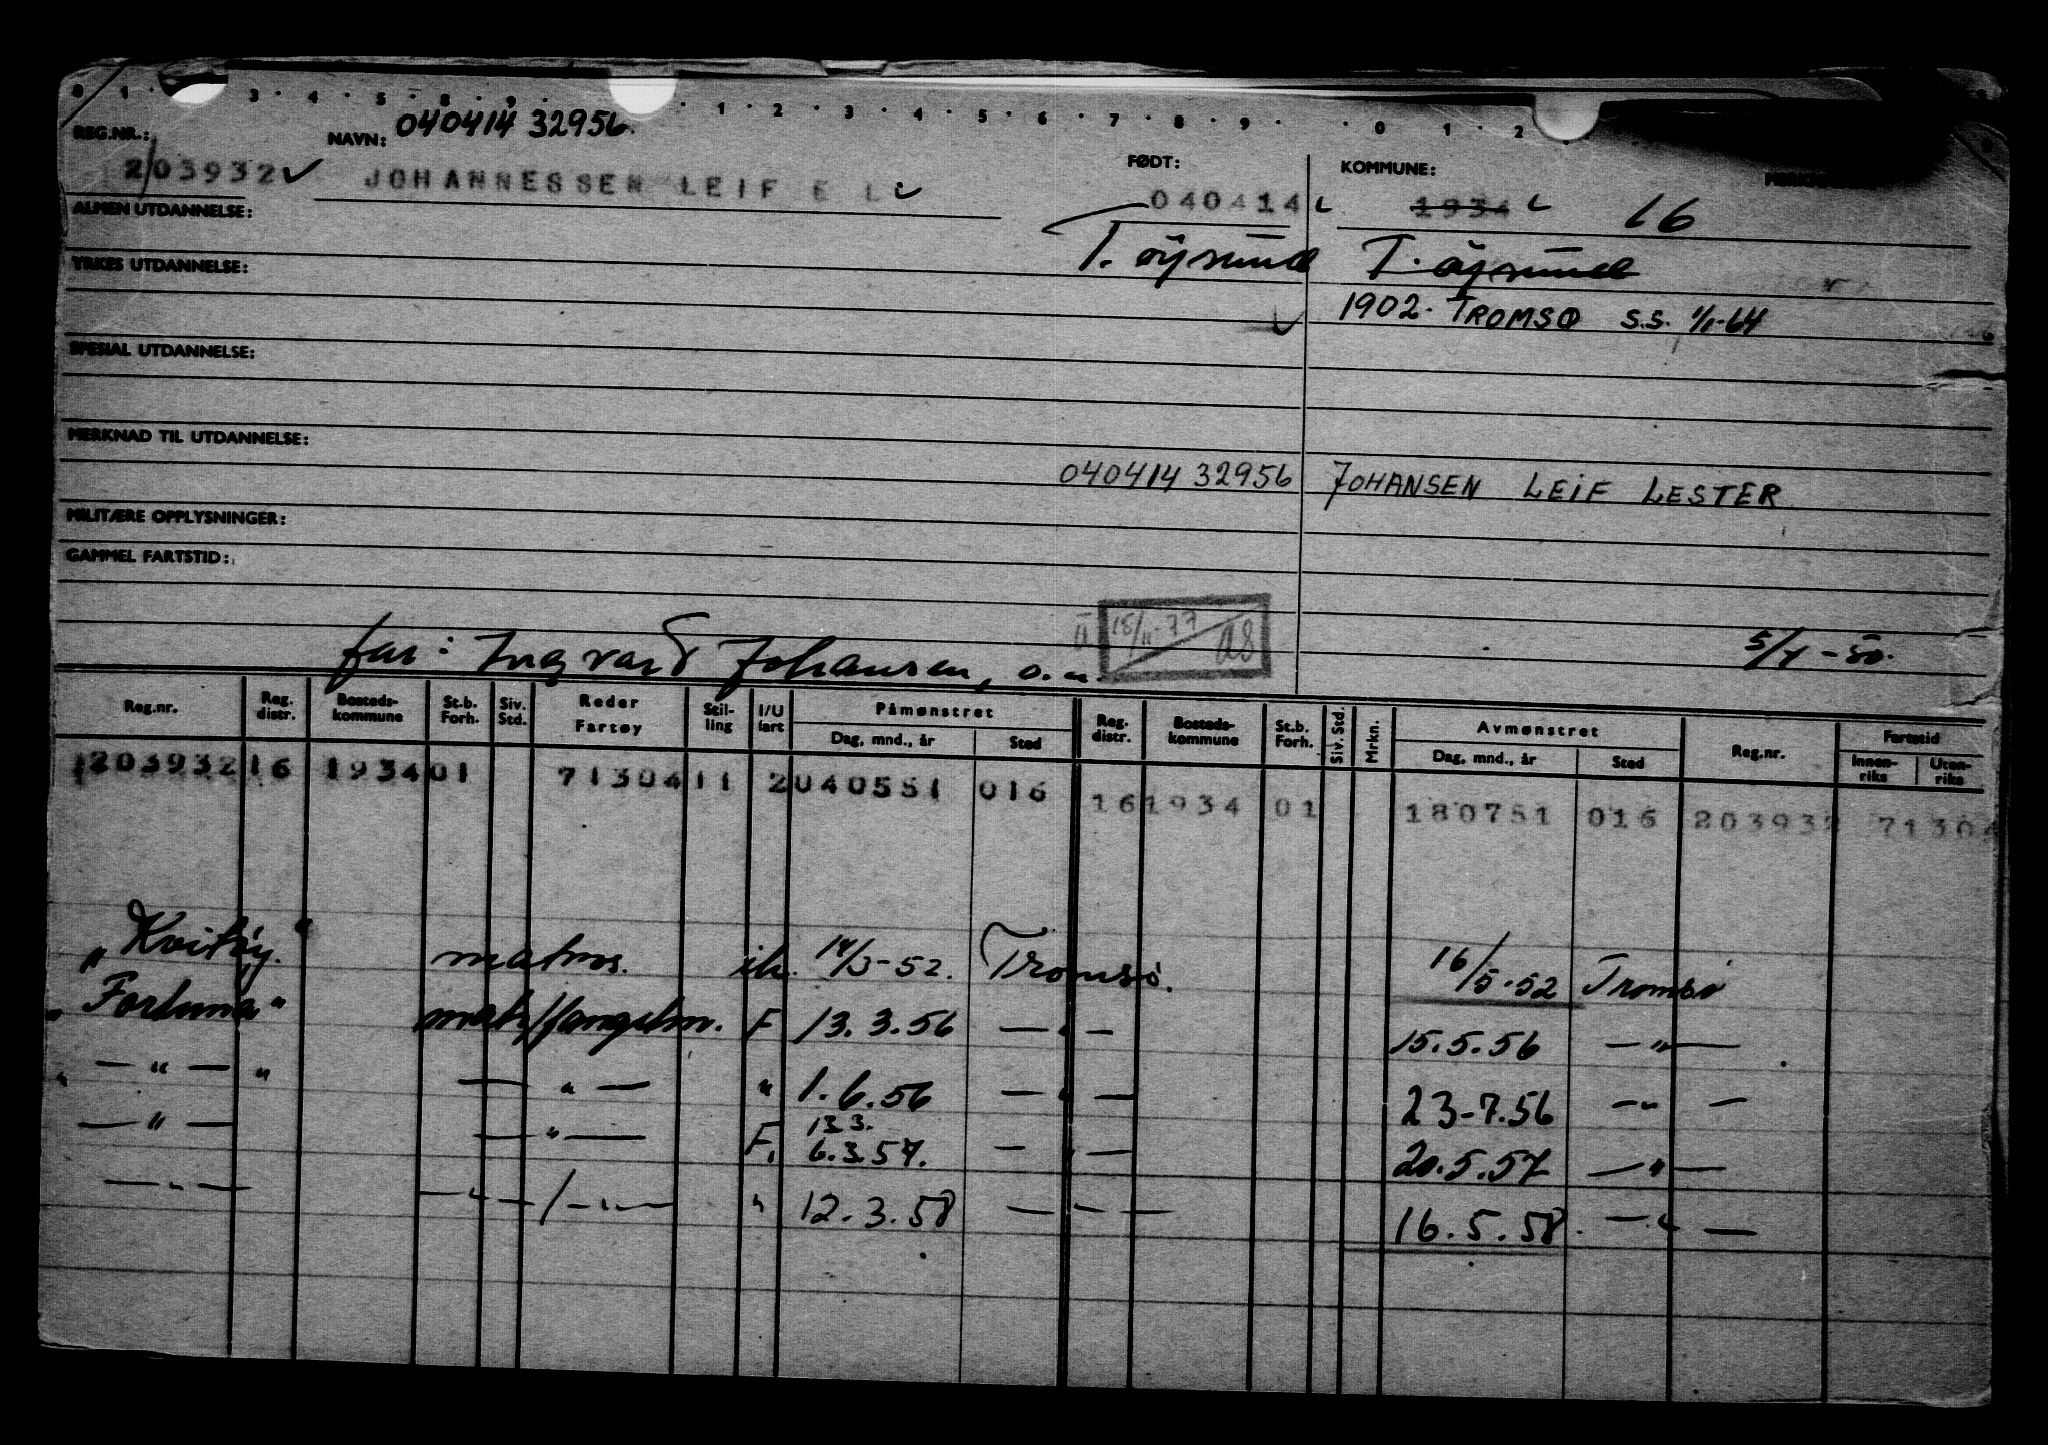 0 1 · 3 · 4 · 5 · 8 · 9 · · 1 · 2 · 3 · 4 · 5 · 6 · 7 · 8 · 9 · · 0 1 · 2
REG.NR.: NAVN: 040414 32956. FØDT: KOMMUNE:
203932 JOHANNESSEN LEIF E L 040414 1934 16
ALMEN UTDANNELSE: T. öysund T. öysund
YRKES UTDANNELSE: 1902. TROMSØ S.S. 1/1-64
SPESIAL UTDANNELSE:
MERKNAD TIL UTDANNELSE:
040414 32956 JOHANSEN LEIF LESTER
MILITÆRE OPPLYSNINGER:
GAMMEL FARTSTID:
far: Ingvard Johansen, s.u. II 15/11-77 5/4-50.
Reg.nr. Reg. distr. Bosteds-kommune St.b. Forh. Siv. Std. Reder Fartøy Stil-ling I/U fart Påmønstret Dag, mnd., år Sted Reg. distr. Bosteds-kommune St.b. Forh. Siv. Std. Mrkn. Avmønstret Dag, mnd., år Sted Reg.nr. Fartstid Innen-riks Uten-riks
1203932 16 1934 01 71304 11 2 040551 016 16 1934 01 180751 016 203932 71304
„Kvitøy." matros. ih. 14/3-52. Tromsø. 16/5-52 Tromsø
„Fortuna" matr/fangstm. F 13.3.56 — " — 15.5.56 — " —
„ — " — " — " — " 1.6.56 — " — 23-7.56 — " —
— " — — " — F. 13 3. 6.3.57. — " — 20.5.57 — " —
— " — — " — / — " — " 12.3.58 — " — 16.5.58. — " —